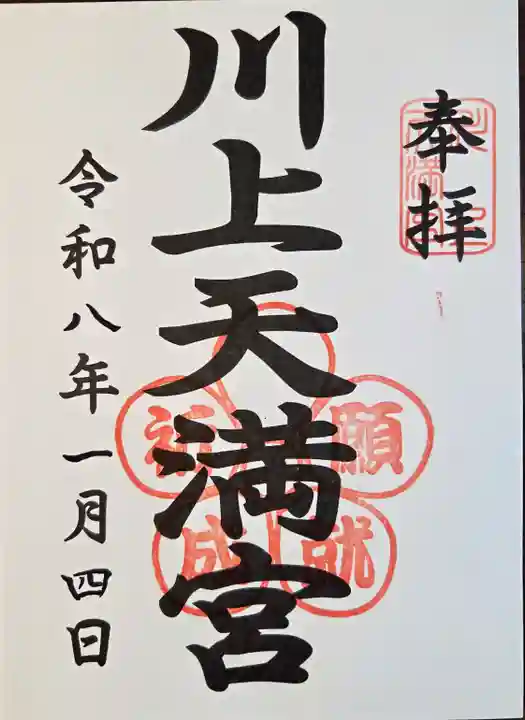 奉拝
川上天満宮
祈願成就
令和八年一月四日